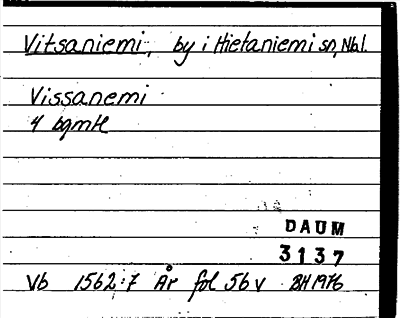 Vitsaniemi, by i Hietaniemi sn, Nbl.
Vissanemi
4 bgmH
DAUM
3137
Vb 1562:7 År fol 56 v BH 1976